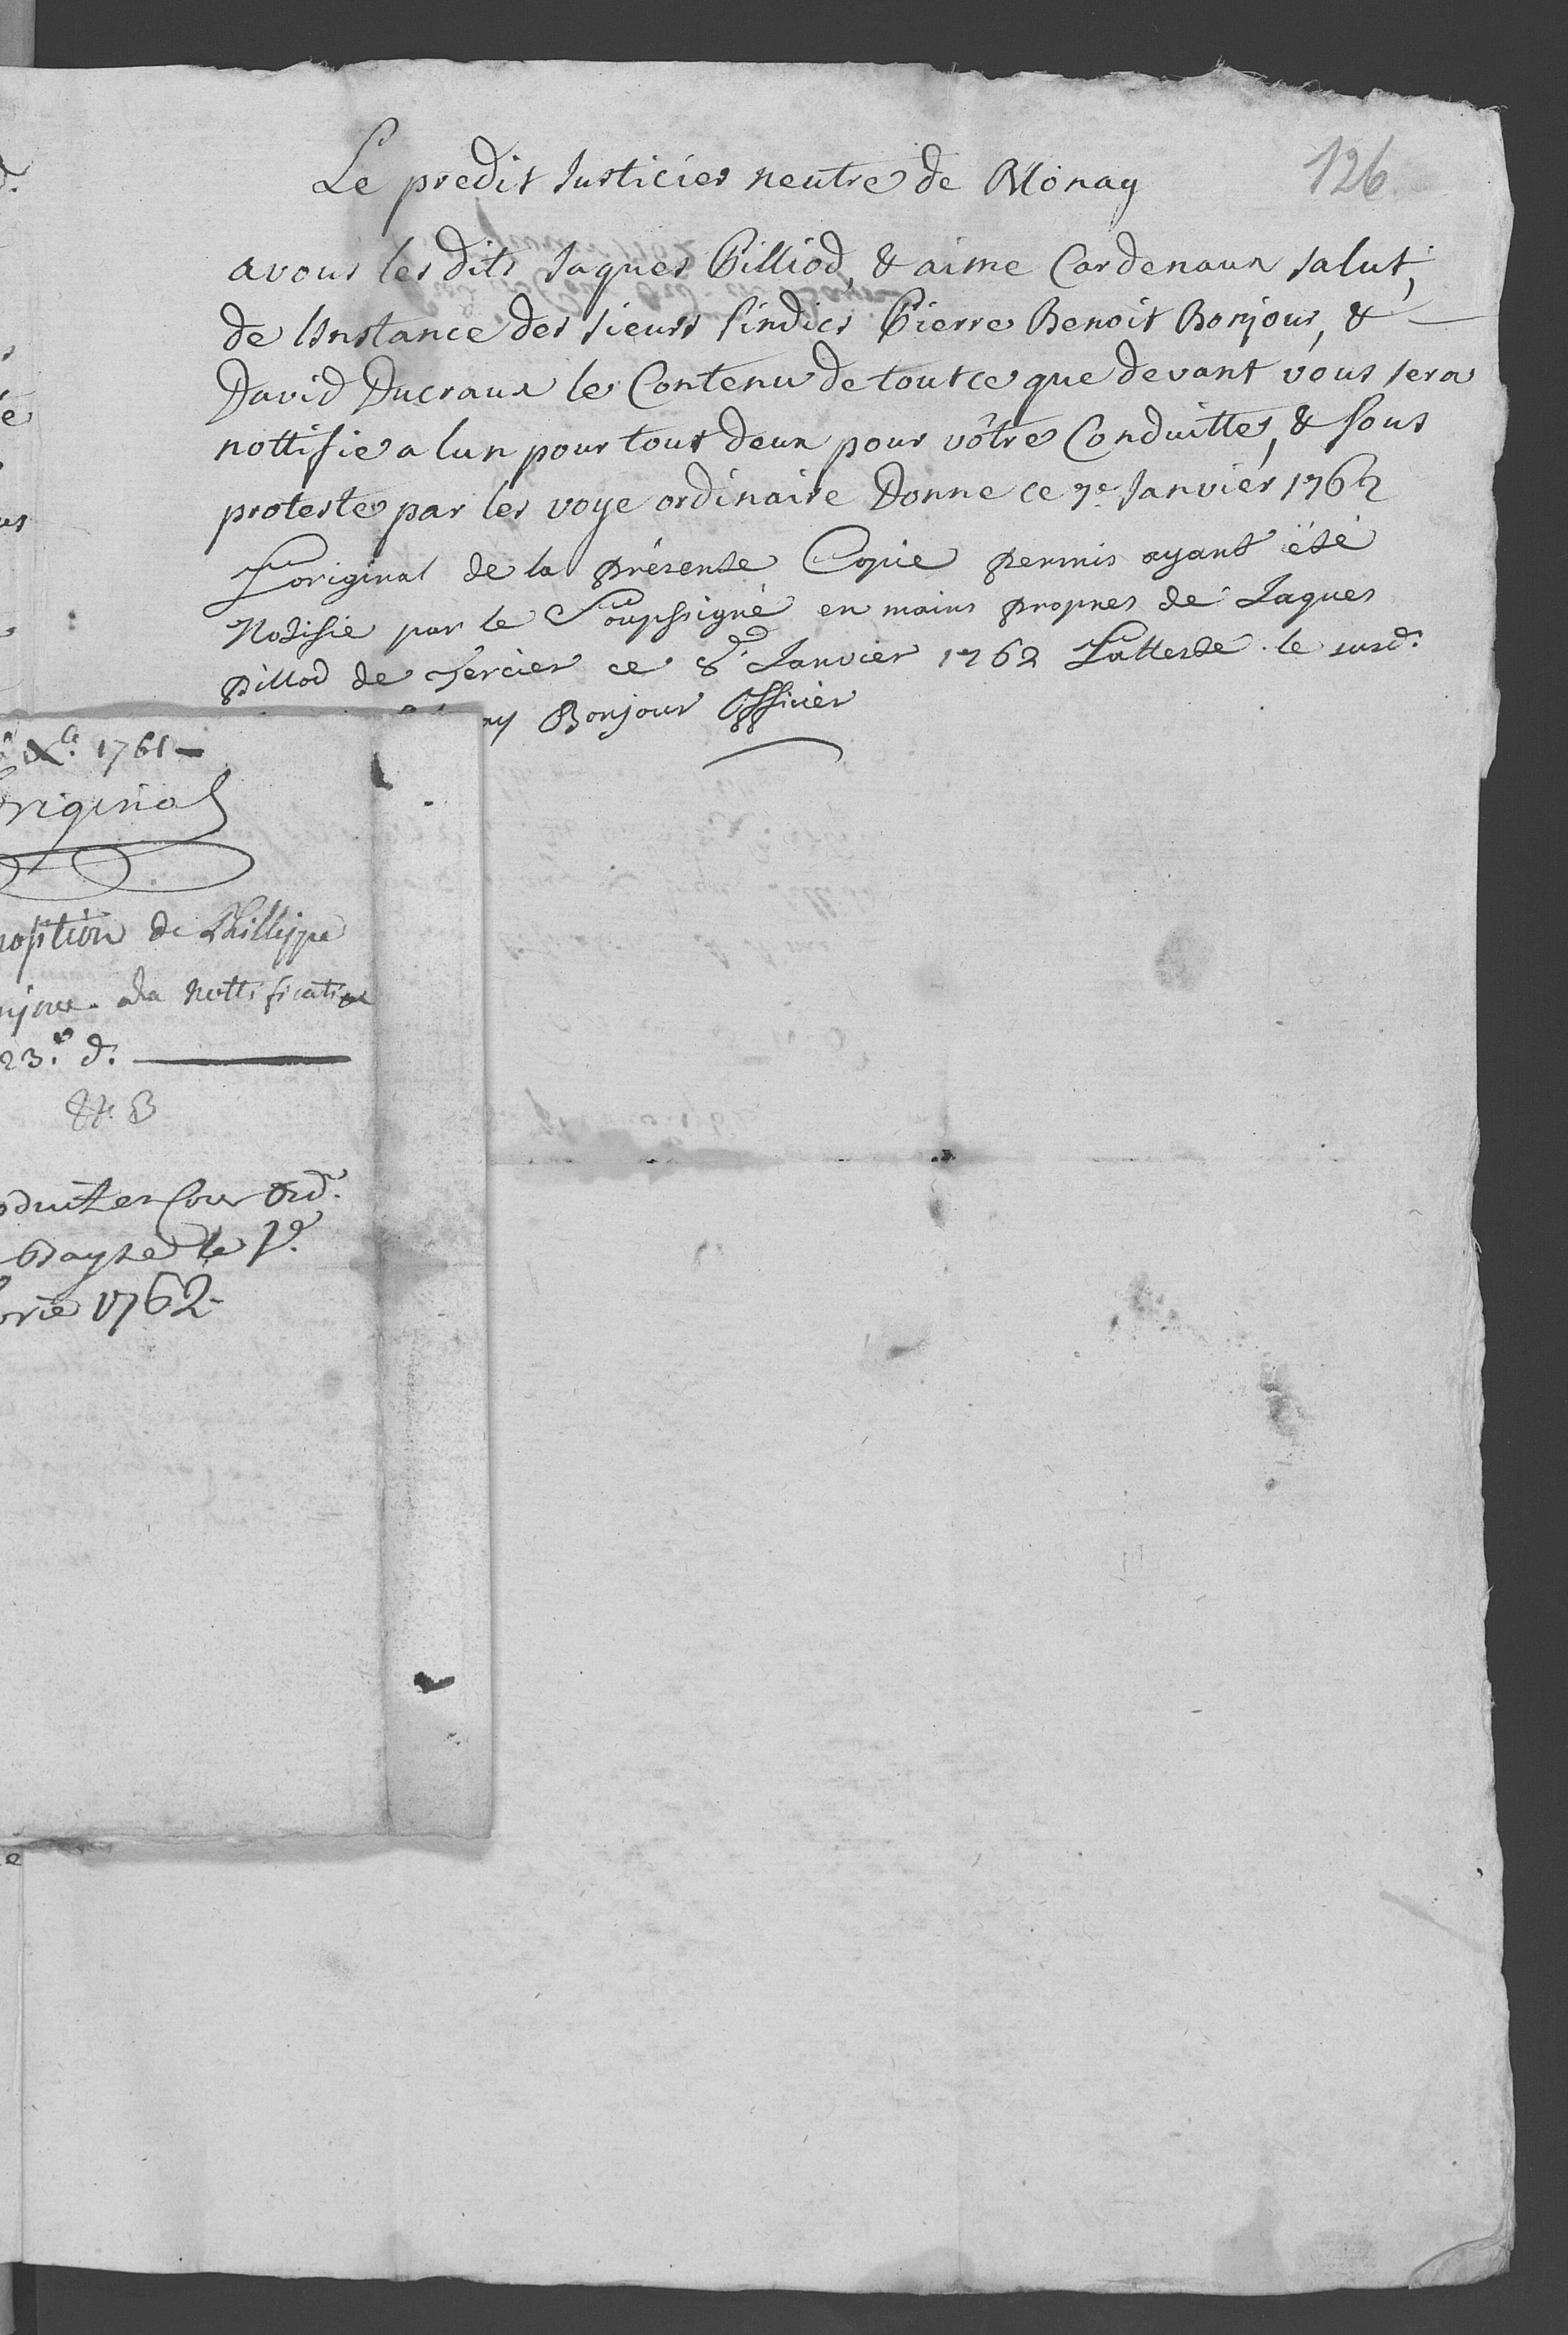 126
Le predit Justicier neutre de Monay
avous les dits Jaques Pilliod, & aime Cardenaux salut,
de linstance des sieurs sindics Pierre Benoit Bonjour, &
David Ducraux le Contenu de tout ce que devant vous sera
nottifie a lun pour tout deux pour vôtre Conduitte, & sous
proteste par les voye ordinaire Donne ce 7e. Janvier 1762
Loriginal de la présente Copie permis ayant été
Notifie par le Soupssigné en mains propres de Jaques
pillod de Tercier ce 8e. Janvier 1762 Latteste le susd.
Bonjour Officier
1761
original
de Phillippe
La nottification
23. d.
B
Cour ord.
le
1762